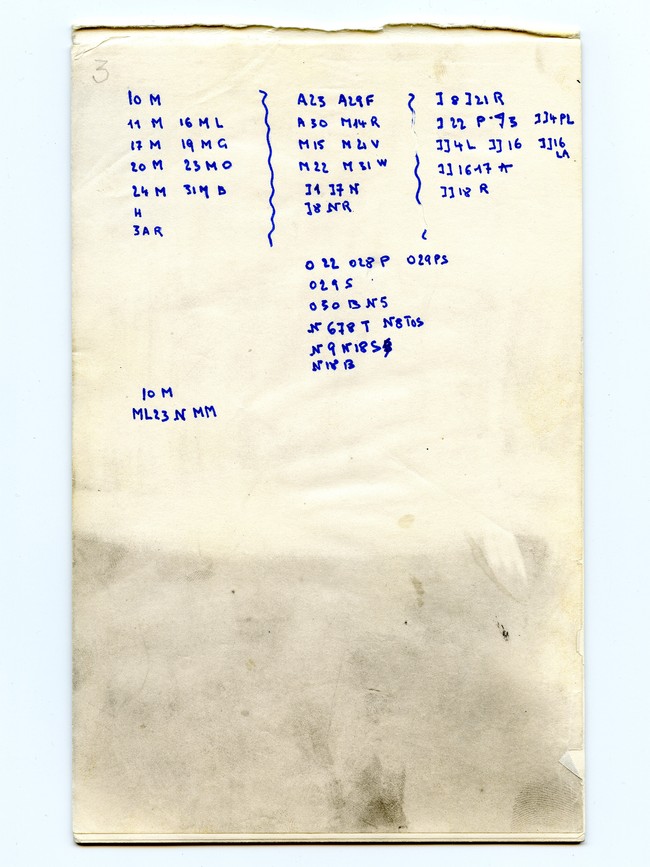 3
10 M
11 M 16 M L
17 M 19 M G
20 M 23 M O
24 M 31 M B
H
3 A R
A23 A29F
A 30 M14 R
M15 M21V
M22 M31 W
J1 J7 N
J8 N R
J 8 J21 R
J 22 P JJ4PL
JJ4 L JJ 16 JJ16 LA
JJ 16 17 A
JJ 18 R
O 22 O28 P O29PS
O29 S
O30 B N5
N 678 T N8TOS
N 9 N18S
N18 B
10 M
ML23 N MM